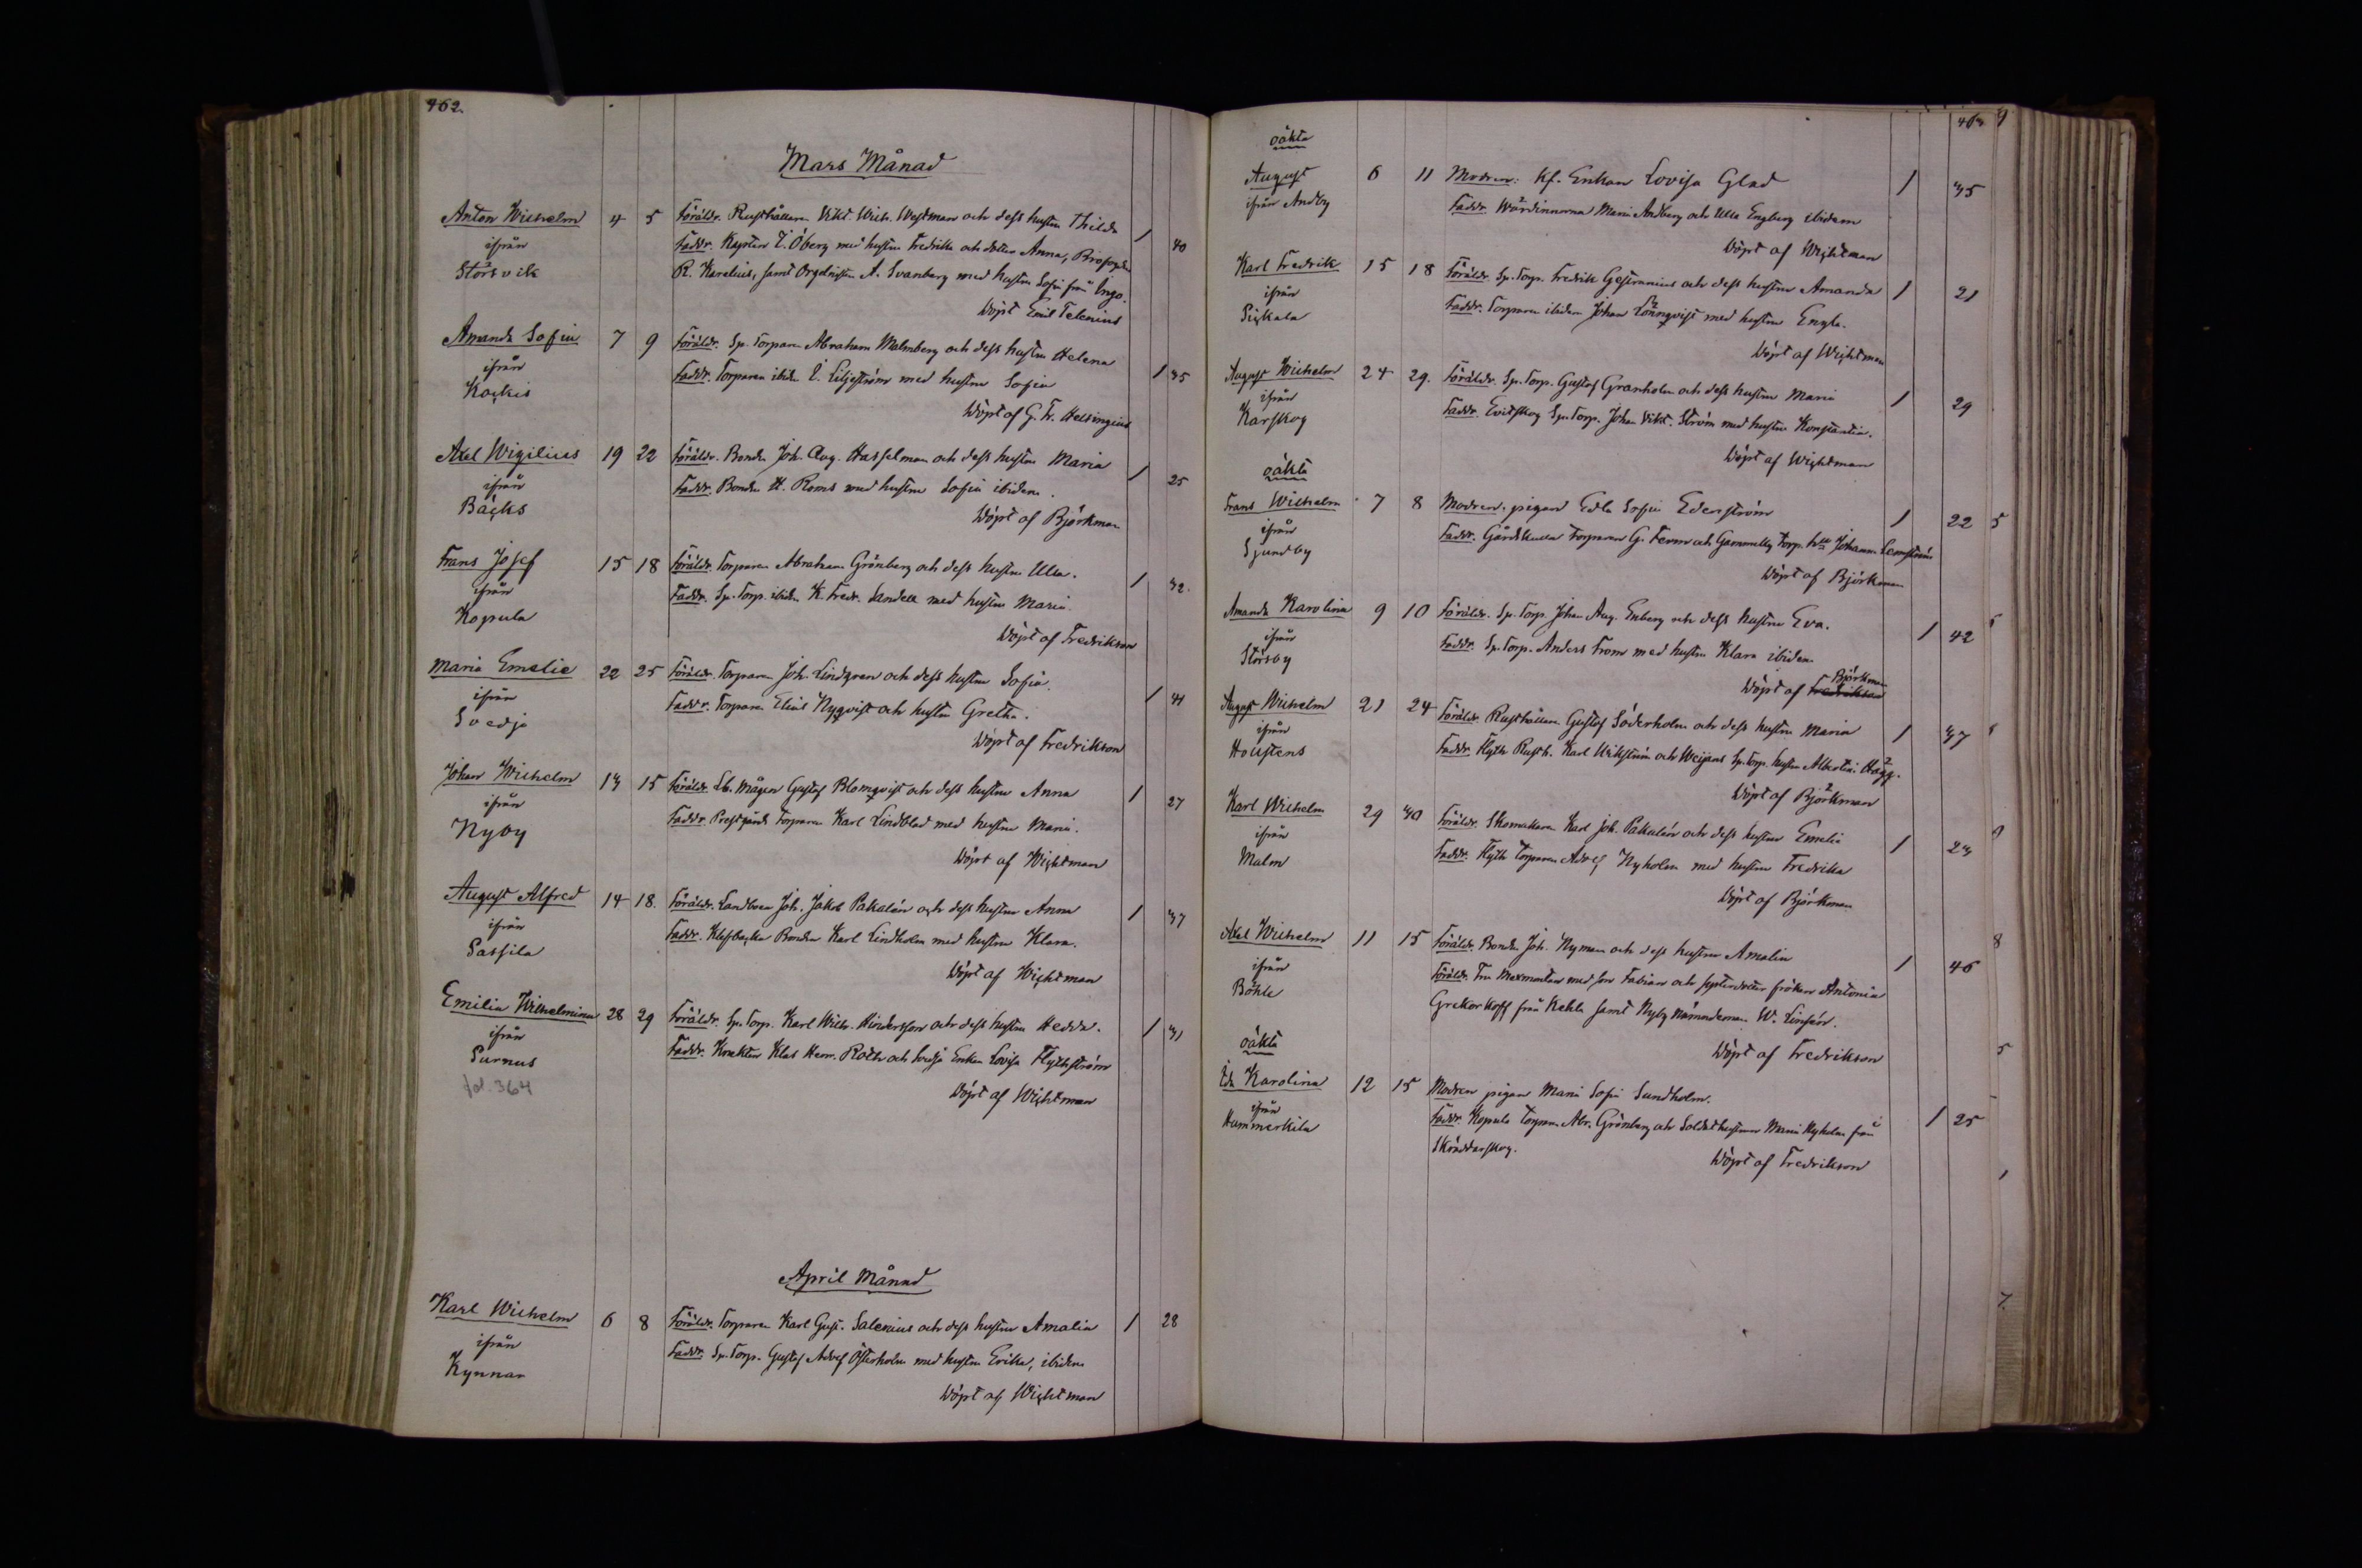 462.
Mars Månad
Anton Wilhelm 4 5 Föräldr. Rusthållaren Vikt. Wilh. Westman och dess hustru Thilda 1 30
ifrån Faddr. Kapten T. Öberg med hustru Fredrika och dotter Anna,
Störsvik R. Karelius, samt Orgelnisten A. Svanberg med hustru Sofia från Ingo.
Döpt Emil Telenius
Amanda Sofia 7 9 Föräldr. Sp. Torparen Abraham Malmberg och dess hustru Helena 1 35
ifrån Faddr. Torparen ibidem E. Liljeström med hustru Sofia
Kockis
Döpt af G. Fr. Helsingius
Axel Wigilius 19 22 Föräldr. Bonden Joh. Aug. Hasselman och dess hustru Maria 1 25
ifrån Faddr. Bonden H. Roms med hustru Sofia ibidem.
Bäcks
Döpt af Björkman
Frans Josef 15 18 Föräldr. Torparen Abraham Grönberg och dess hustru Ulla. 1 32.
ifrån Faddr. Sp. Torp. ibidem K. Fredr. Sandell med hustru Maria.
Kopula
Döpt af Fredrikson
Maria Emelie 22 25 Föräldr. Torparen Joh. Lindgren och dess hustru Sofia. 1 41
ifrån Faddr. Torparen Elias Nyqvist och hustru Gretha.
Svedja
Döpt af Fredrikson
Johan Wilhelm 13 15 Föräldr. Lb. mågen Gustaf Blomqvist och dess hustru Anna 1 27
ifrån Faddr. Prestgårds Torparen Karl Lindblad med hustru Maria.
Nyby
Döpt af Wichtman
August Alfred 14 18. Föräldr. Landboen Joh. Jakob Pakalén och dess hustru Anna 1 37
ifrån Faddr. Klefbacka Bonden Karl Lindholm med hustru Klara.
Passila
Döpt af Wichtman
Emilia Wilhelmina 28 29 Föräldr. Sp. Torp. Karl Wilh. Hindersson och dess hustru Hedda. 1 31
ifrån Faddr. Knekten Klas Herr. Roth och Svedja Enkan Lovisa Flythström
Purnus
fol. 364
Döpt af Wichtman
April Månad
Karl Wilhelm 6 8 Föräldr. Torparen Karl Gust. Salenius och dess hustru Amalia 1 28
ifrån Faddr. Sp. Torp. Gustaf Adolf Österholm med hustru Erika, ibidem
Kynnar
Döpt af Wichtman
463
oäkta
August 6 11 Modren: Kf. Enkan Lovisa Glad 1 35
ifrån Andby Faddr. Wärdinnorna Maria Andberg och Ulla Engberg ibidem
Döpt af Wichtman
Karl Fredrik 15 18 Föräldr. Sp. Torp. Fredrik Gestranius och dess hustru Amanda 1 21
ifrån Faddr. Torparen ibidem Johan Lönnqvist med hustru Engla.
Pickala
Döpt af Wichtman
August Wilhelm 24 29. Föräldr. Sp. Torp. Gustaf Granholm och dess hustru Maria 1 29
ifrån Faddr. Evitskog Sp. Torp. Johan Vikt. Ström med hustru Konstantia.
Karskog
Döpt af Wichtman
oäkta
Frans Wilhelm 7 8 Modren, pigan Edla Sofia Ederström 1 22
ifrån Faddr. Gårdskulla Torparen G. Ferm och Gammelby Torp. Johanna Lemström
Sjundby
Döpt af Björkman
Amanda Karolina 9 10 Föräldr. Sp. Torp. Johan Aug. Enberg och dess hustru Eva. 1 42
ifrån Faddr. Sp. Torp. Anders From med hustru Klara ibidem
Störsby
Döpt af Fredrikson Björkman
August Wilhelm 21 24 Föräldr. Rusthållaren Gustaf Söderholm och dess hustru Maria 1 37
ifrån Faddr. Flyth Rusth. Karl Wikström och Weijans Sp. Torp. hustru Albertina Hägg.
Hollstens
Döpt af Björkman
Karl Wilhelm 29 30 Föräldr. Skomakaren Karl Joh. Pakalén och dess hustru Emelie 1 23
ifrån Faddr. Flyth Torparen Adolf Nyholm med hustru Fredrika
Malm
Döpt af Björkman
Axel Wilhelm 11 15 Föräldr. Bonden Joh. Nyman och dess hustru Amalia 1 46
ifrån Föräldr. Fru Mexmontan med son Fabian och systerdotter fröken Antonia
Böhle Grekorkoff från Kehla samt Nyby Nämndeman W. Linsén.
Döpt af Fredrikson
oäkta
Ida Karolina 12 15 Modren pigan Maria Sofia Sundholm.
ifrån Faddr. Kopula Torparen Abr. Grönberg och Soldathustrun Maria Nyholm från 1 25
Hummerkila Skräddarskog.
Döpt af Fredrikson